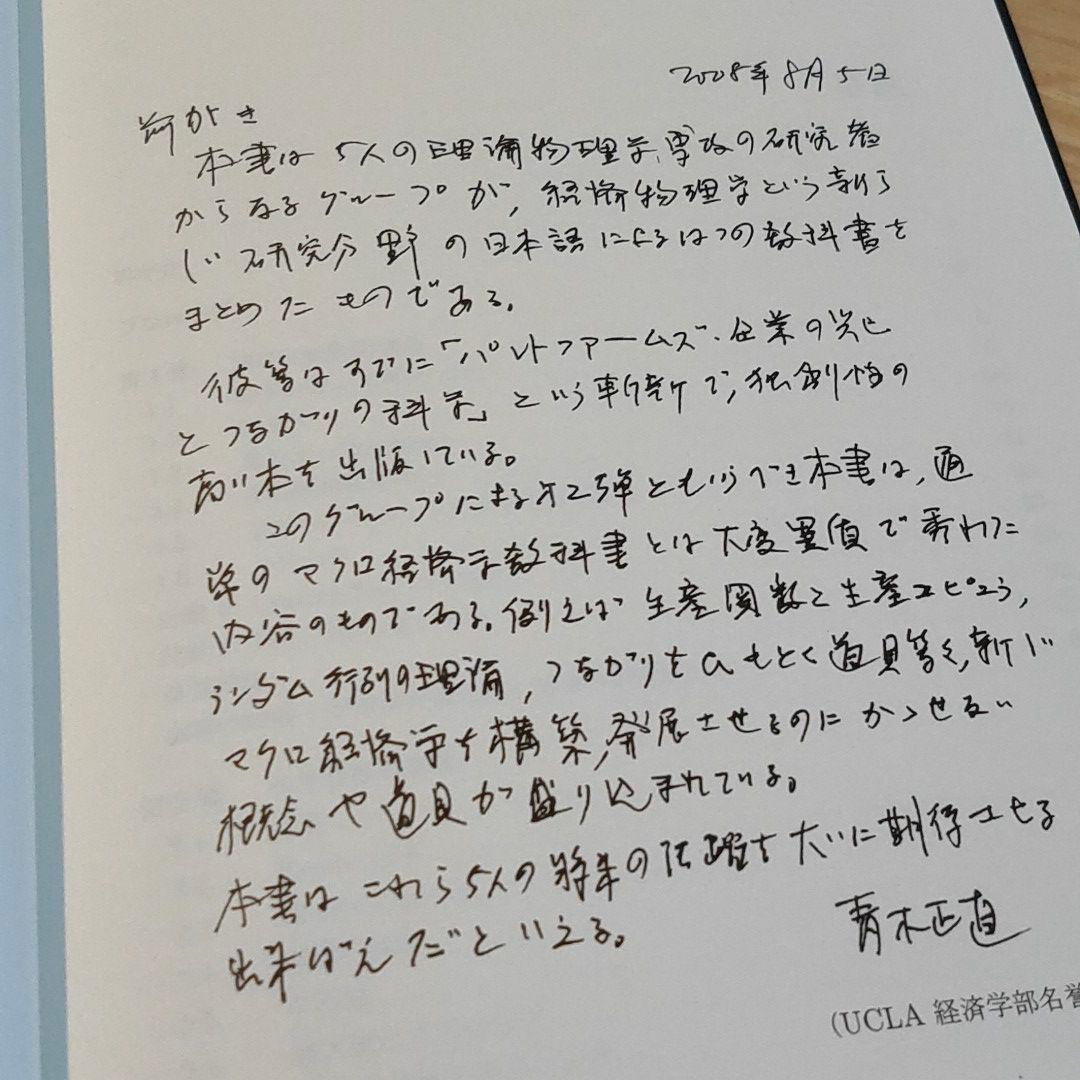 2008年8月5日
前がき
本書は5人の理論物理学専攻の研究者
からなるグループが、経済物理学という新ら
しい研究分野の日本語によるはつの教科書を
まとめたものである。
彼等はすでに「パレートファームズ・企業の興亡
とつながりの科学」という斬新で、独創性の
高い本を出版している。
このグループによる第2弾ともいうべき本書は、通
常のマクロ経済学教科書とは大変異質で秀れた
内容のものである。例えば生産関数と生産コピュラ,
ランダム行列の理論,つながりを もとく道具等々,新しい
マクロ経済学を構築,発展させるのにかかせない
概念や道具が盛り込まれている。
本書はこれら5人の将来の活躍を大いに期待させる
出来ばえだといえる。
青木正直
(UCLA 経済学部名誉